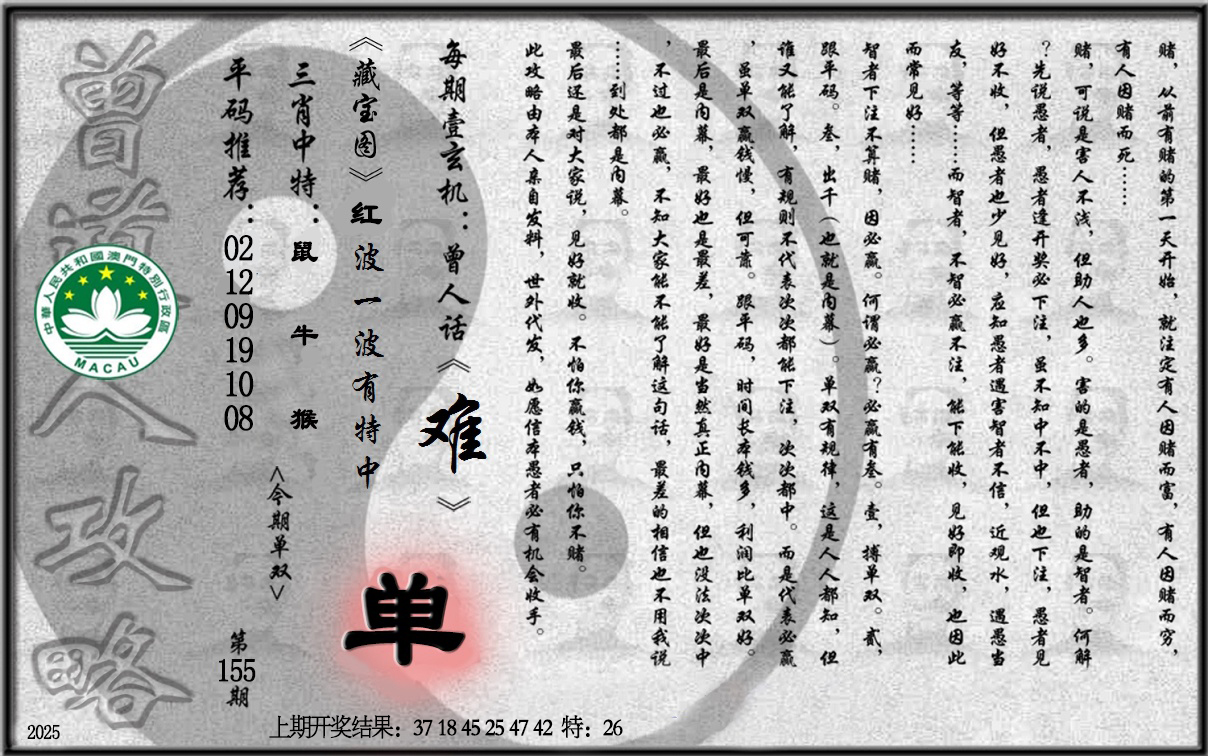 赌，从前有赌的第一天开始，就注定有人因赌而富，有人因赌而穷，
有人因赌而死……
赌，可说是害人不浅，但助人也多。害的是愚者，助的是智者。何解
？先说愚者，愚者逢开奖必下注，虽不知中不中，但也下注，愚者见
好不收，但愚者也少见好，应知愚者遇害智者不信，近观水，遇愚当
友，等等……而智者，不智必赢不注，能下能收，见好即收，也因此
而常见好……
智者下注不算赌，因必赢。何谓必赢？必赢有叁。壹，搏单双。贰，
跟平码。叁，出千（也就是内幕）。单双有规律，这是人人都知，但
谁又能了解，有规则不代表次次都能下注，次次都中。而是代表必赢
，虽单双赢钱慢，但可靠。跟平码，时间长本钱多，利润比单双好。
最后是内幕，最好也是最差，最好是当然真正内幕，但也没法次次中
，不过也必赢，不知大家能不能了解这句话，最差的相信也不用我说
……到处都是内幕。
最后还是对大家说，见好就收。不怕你赢钱，只怕你不赌。
此攻略由本人亲自发料，世外代发，如愿信本愚者必有机会收手。
每期壹玄机：曾人话《难》
《藏宝图》红波一波有特中
单
三肖中特：鼠 牛 猴
<今期单双>
平码推荐：02 12 09 19 10 08
第155期
曾道人攻略
中華人民共和國澳門特別行政區
MACAU
2025
上期开奖结果：37 18 45 25 47 42 特：26